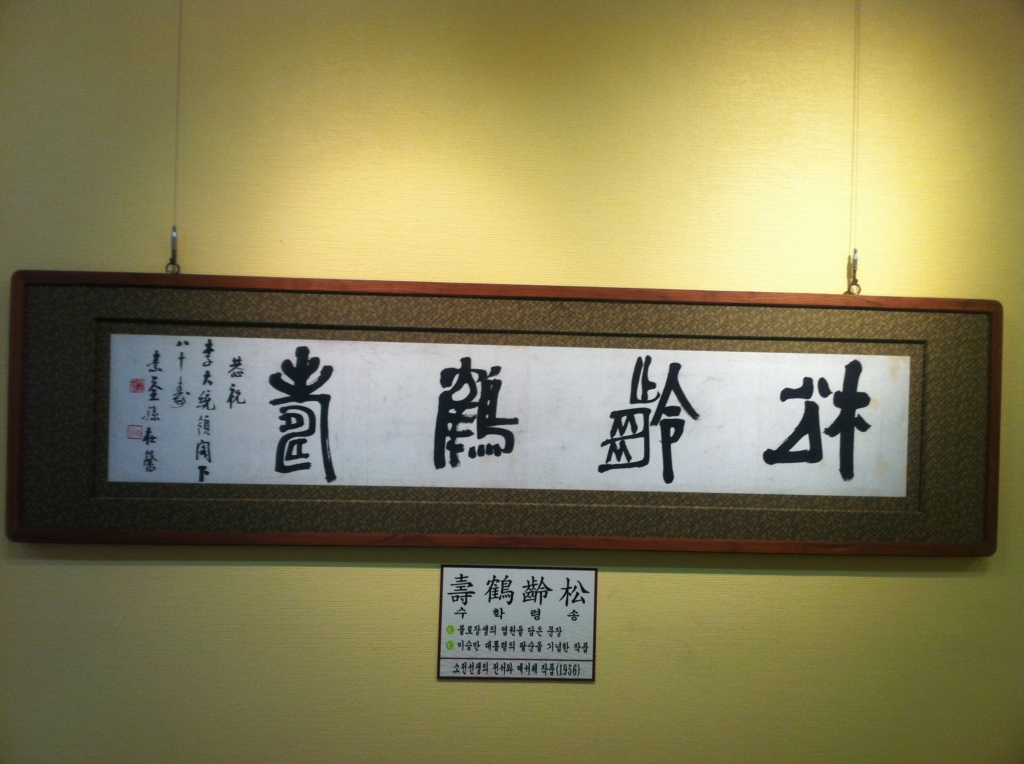 松齡鶴壽
恭祝
李大統領閣下
八十壽
素荃孫在馨
壽鶴齡松
수 학 령 송
불로장생의 염원을 담은 문장
이승만 대통령의 팔순을 기념한 작품
소전선생의 전서와 예서체 작품(1956)